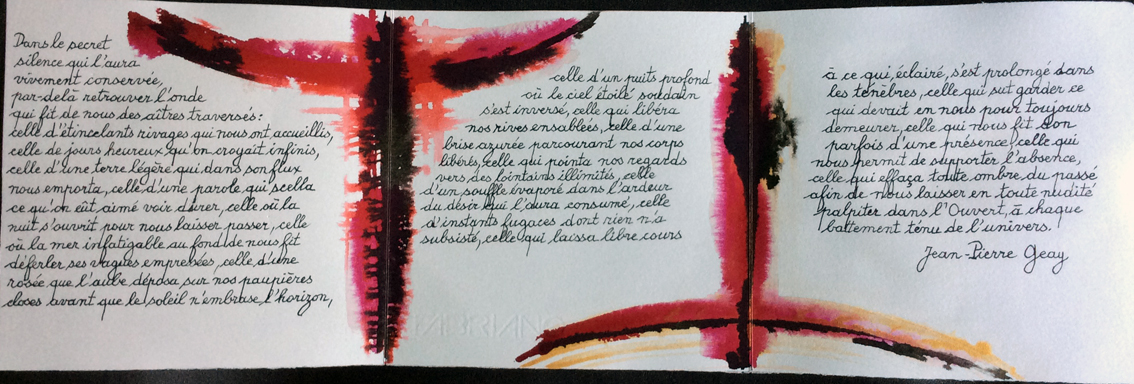 Dans le secret
silence qui l'aura
vivement conservée,
par-delà retrouver l'onde
qui fit de nous des aîtres traversés :
celle d'étincelants rivages qui nous ont accueillis,
celle de jours heureux qu'on croyait infinis,
celle d'une terre légère qui dans son flux
nous emporta, celle d'une parole qui scella
ce qu'on eût aimé voir durer, celle où la
nuit s'ouvrit pour nous laisser passer, celle
où la mer infatigable au fond de nous fit
déferler ses vagues empresées, celle d'une
rosée que l'aube déposa sur nos paupières
closes avant que le soleil n'embrase l'horizon,
celle d'un puits profond
où le ciel étoilé soudain
s'est inversé, celle qui libéra
nos rives ensablées, celle d'une
brise azurée parcourant nos corps
libérés, celle qui pointa nos regards
vers des lointains illimités, celle
d'un souffle évaporé dans l'ardeur
du désir qui l'aura consumé, celle
d'instants fugaces dont rien n'a
subsisté, celle qui laissa libre cours
à ce qui, éclairé, s'est prolongé dans
les ténèbres, celle qui sut garder ce
qui devait en nous pour toujours
demeurer, celle qui nous fit don
parfois d'une présence, celle qui
nous permit de supporter l'absence,
celle qui effaça toute ombre du passé
afin de nous laisser en toute nudité
palpiter dans l'Ouvert, à chaque
battement ténu de l'univers.
Jean-Pierre Geay
FABRIANO